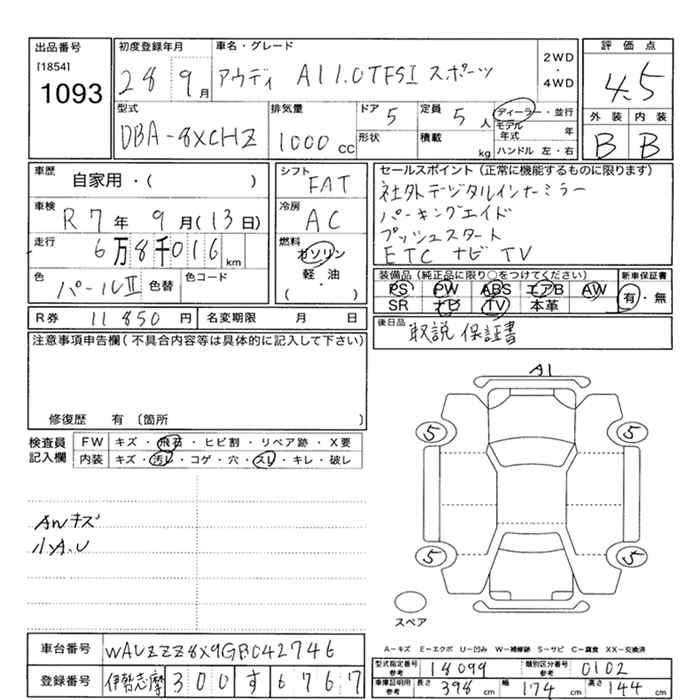 出品番号
[1854]
1093
初度登録年月
28 9月
車名・グレード
アウディ A1 1.0TFSI スポーツ
2WD
・
4WD
評価点
4.5
外装 内装
B B
型式
DBA-8XCHZ
排気量
1000cc
ドア 5
形状
定員 5人
積載 kg
ディーラー・並行
モデル年式 年
ハンドル 左・右
車歴
自家用・( )
車検
R7年 9月(13日)
走行
6万8千016km
色
パールII
色替
色コード
シフト
FAT
冷房
AC
燃料
ガソリン
軽・油
( ・ )
セールスポイント(正常に機能するものに限ります)
社外デジタルインナーミラー
パーキングエイド
プッシュスタート
ETC ナビ TV
装備品(純正品に限り○をつけてください)
PS PW ABS エアB AW
SR ナビ TV 本革
新車保証書
有・無
R券 11850円
名変期限 月 日
後日品
取説 保証書
注意事項申告欄(不具合内容等は具体的に記入して下さい)
修復歴 有〔箇所 〕
検査員
記入欄
FW キズ・飛石・ヒビ割・リペア跡・X要
内装 キズ・汚レ・コゲ・穴・スレ・キレ・破レ
AWキズ
小A.U
A1
5 5
5 5
スペア
A-キズ E-エクボ U-凹み W-補修跡 S-サビ C-腐食 XX-交換済
車台番号 WAUZZZ8X9GB042746
登録番号 伊勢志摩 300 す 6767
型式指定番号
参考
18099
類別区分番号
参考
0102
車庫証明用
参考
長さ 398cm 幅 174cm 高さ 144cm